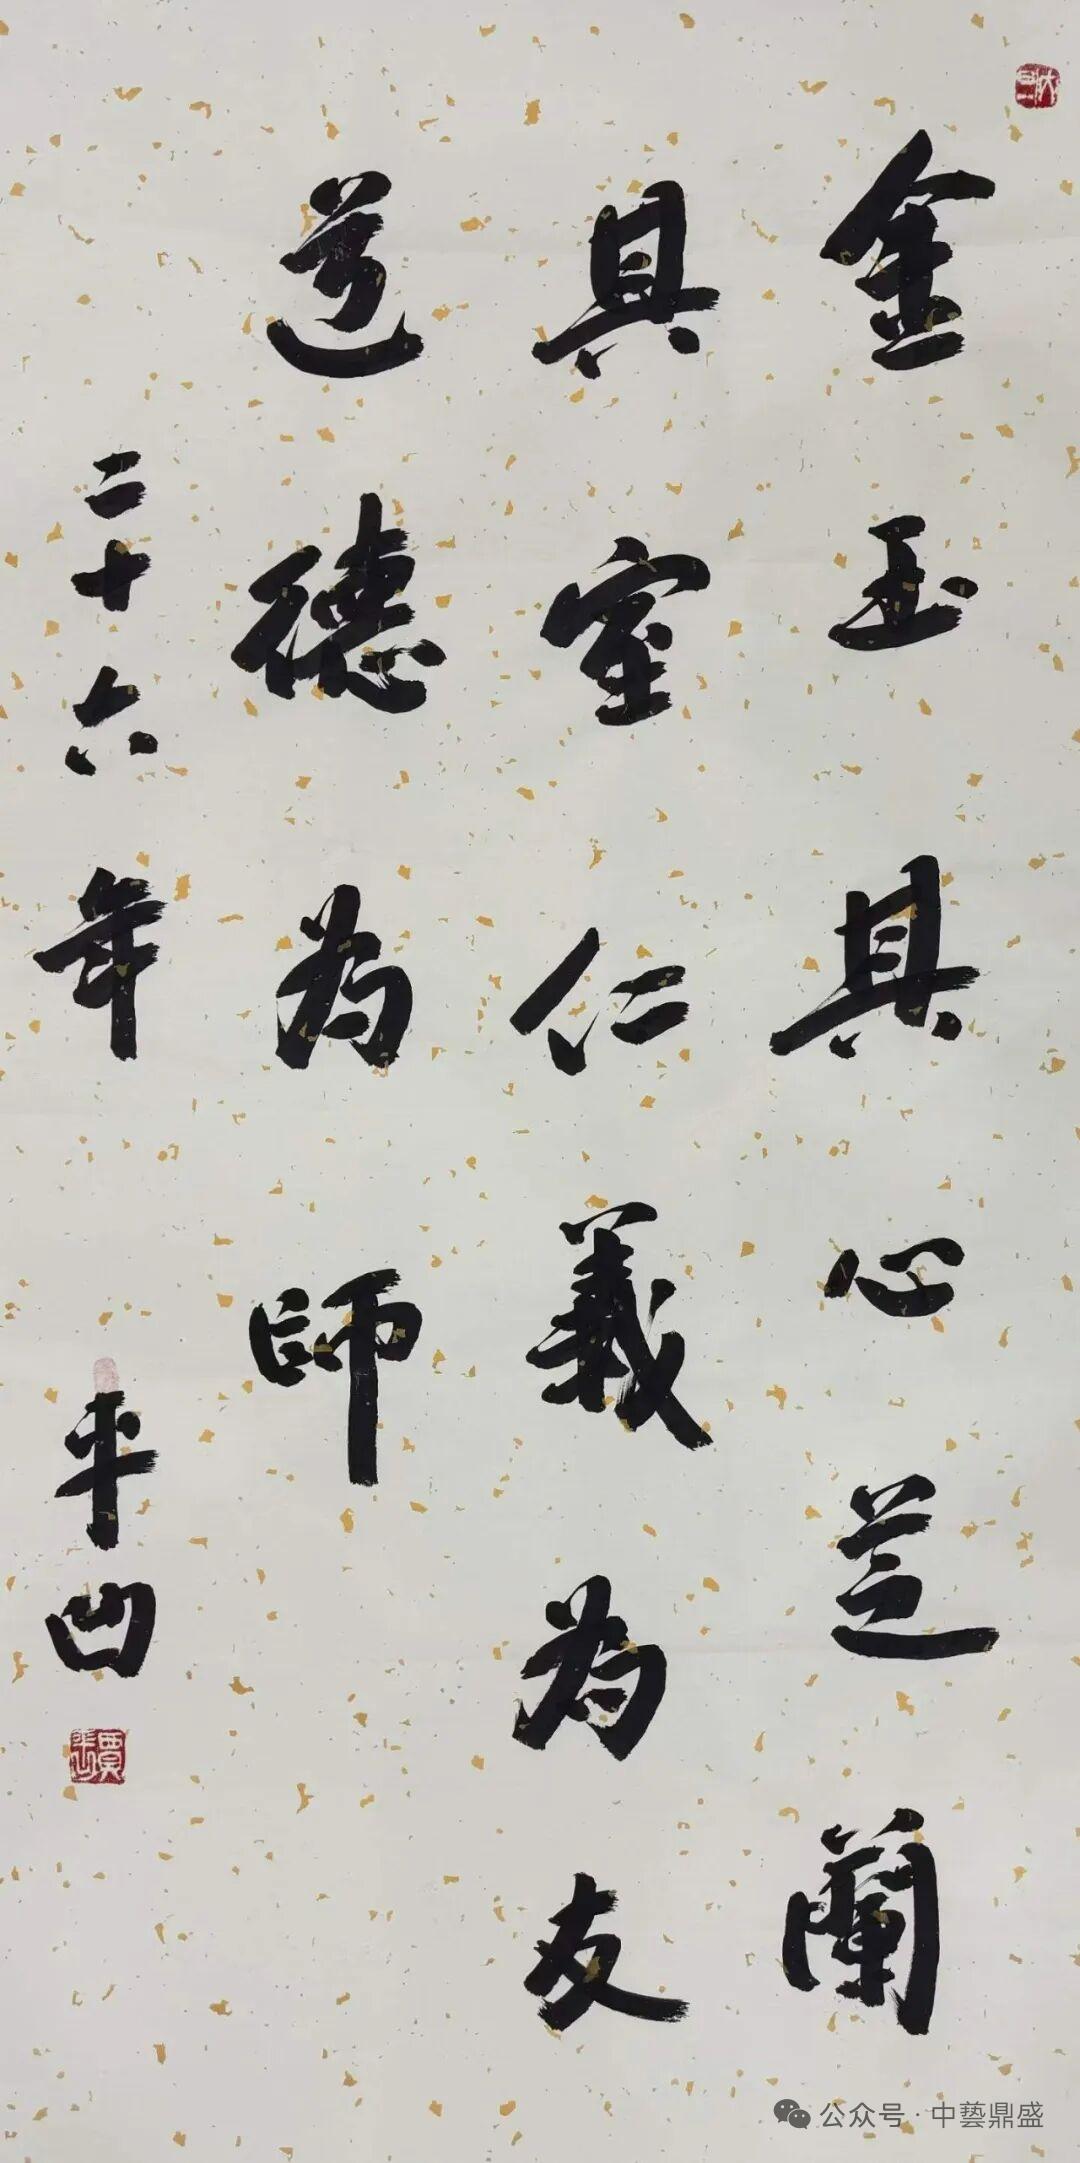 金玉其心芝蘭
具室仁義為友
道德為師
二十六年
平凹
賈平凹
公众号·中藝鼎盛